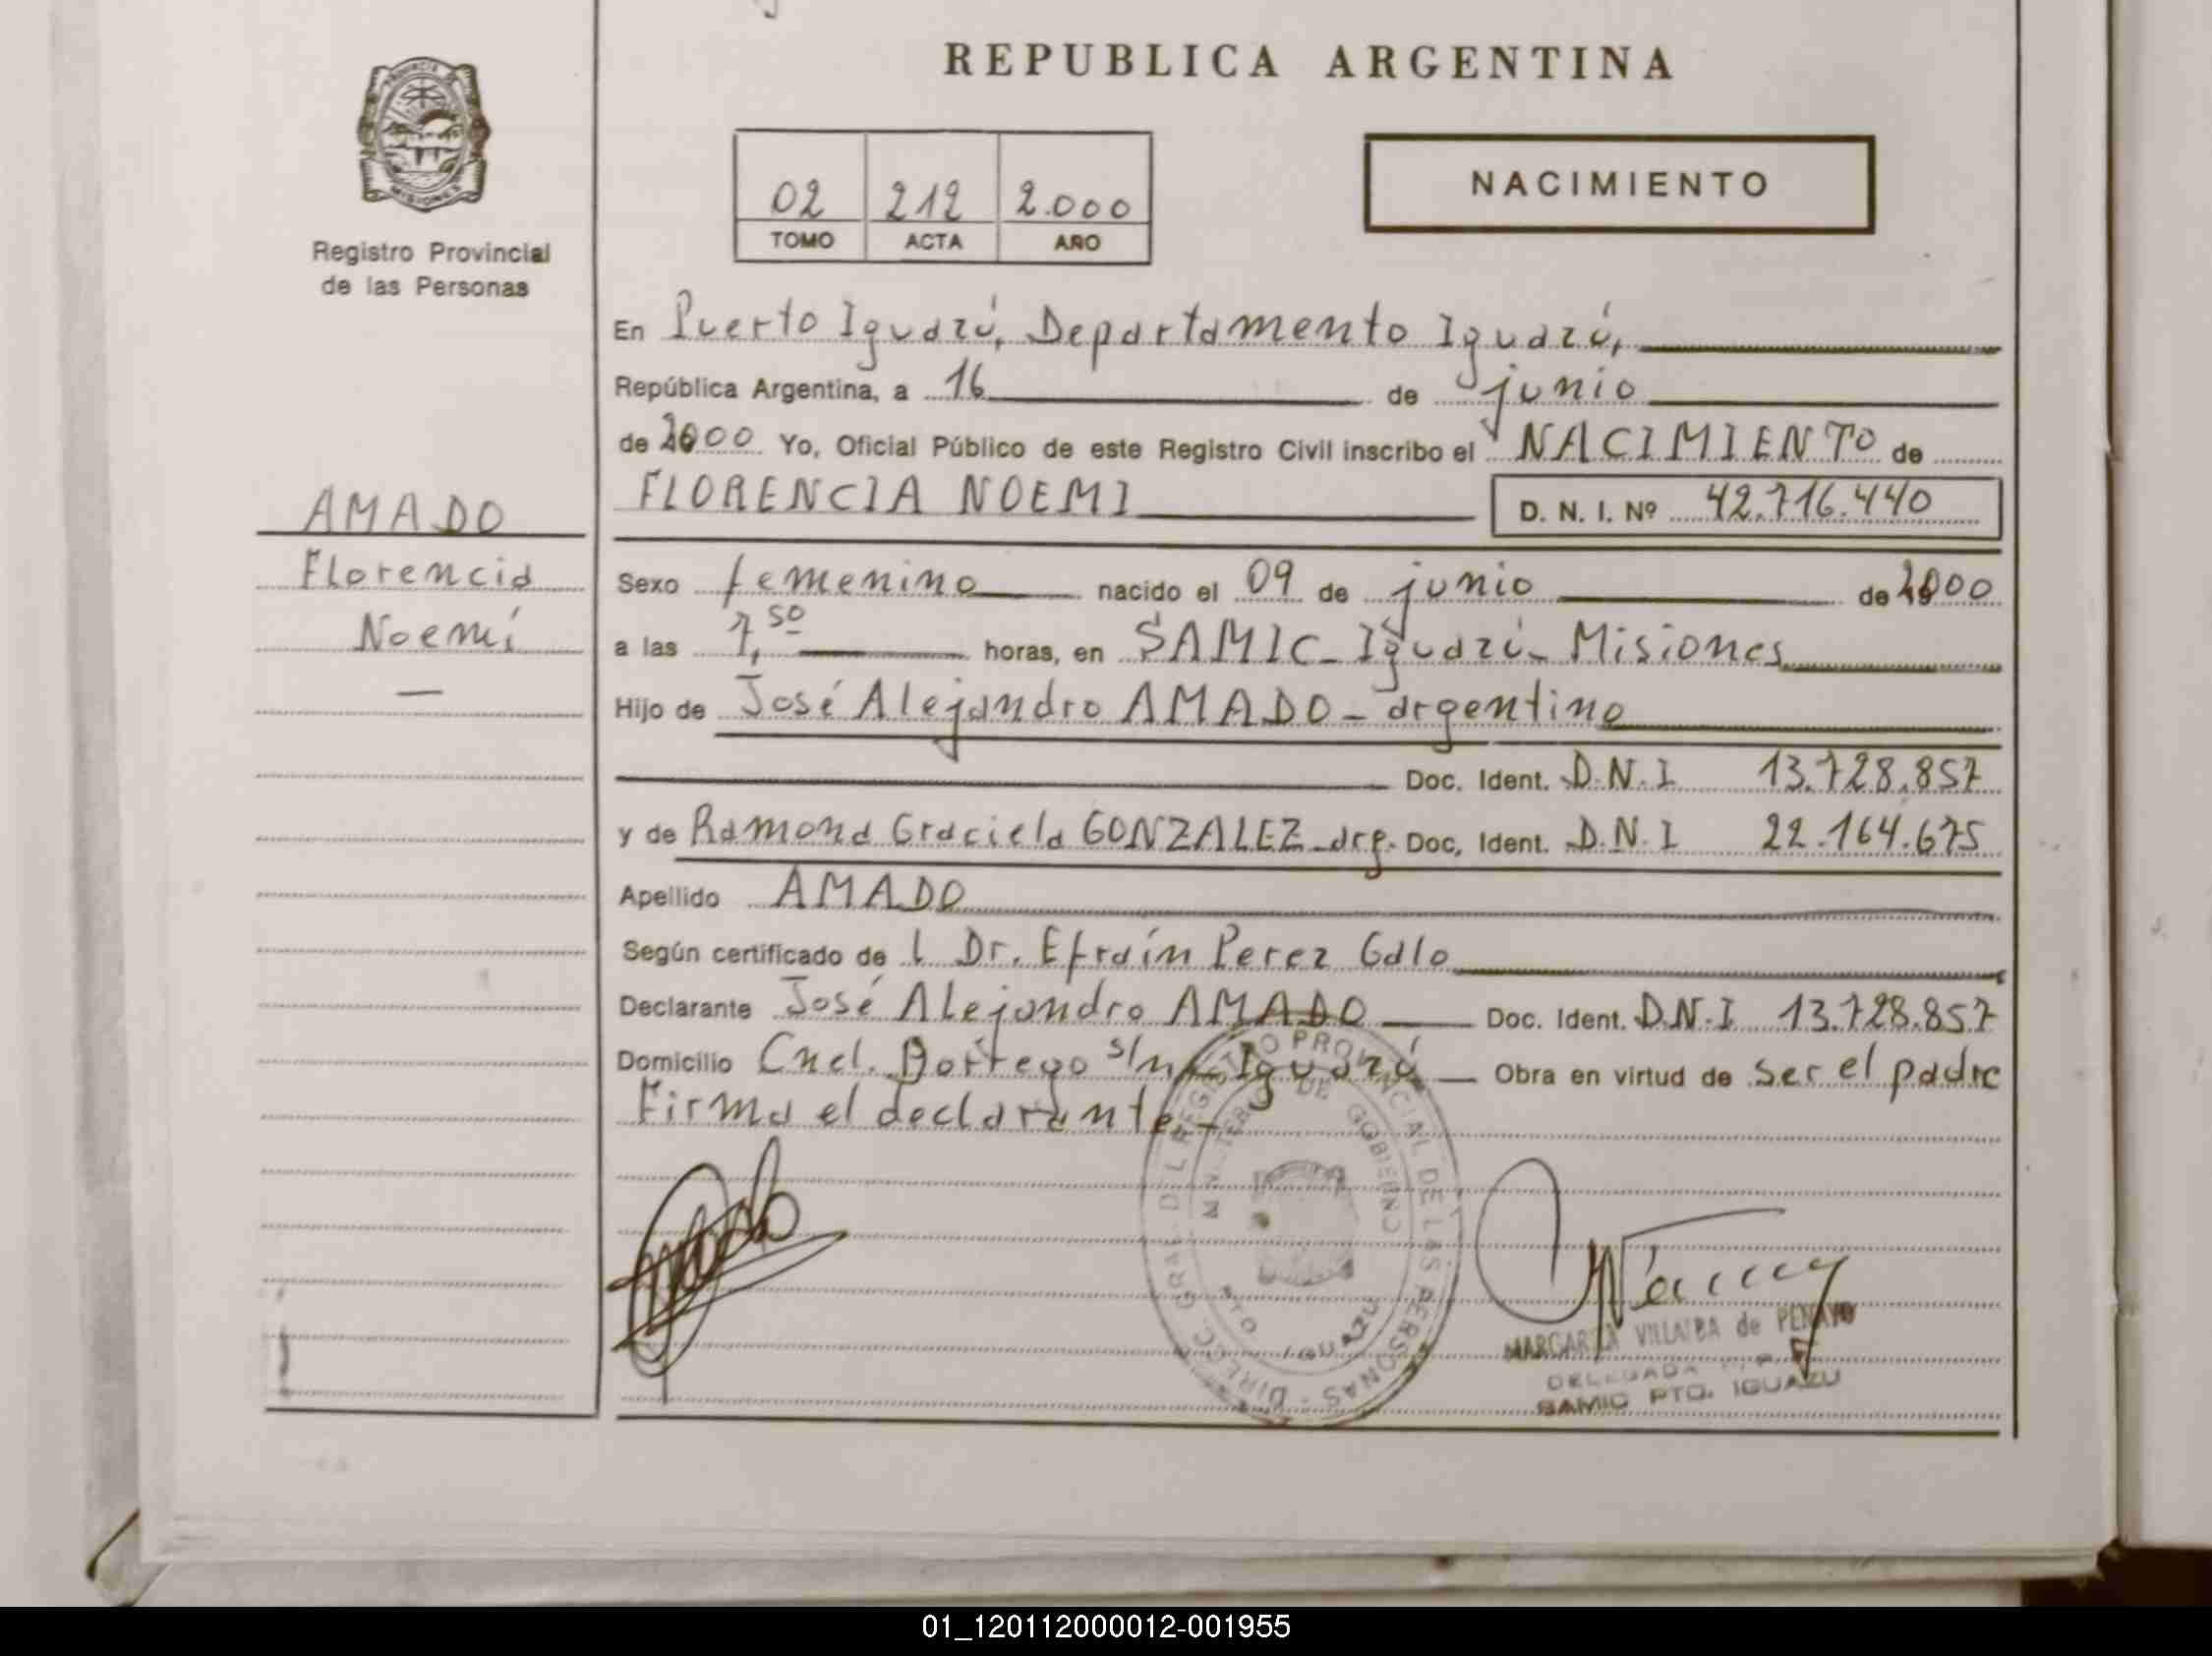 REPUBLICA ARGENTINA
PROVINCIA DE MISIONES
Registro Provincial
de las Personas
02 212 2.000
TOMO ACTA AÑO
NACIMIENTO
En Puerto Iguazú, Departamento Iguazú,
República Argentina, a 16 de junio
de 2000 Yo, Oficial Público de este Registro Civil inscribo el NACIMIENTO de
FLORENCIA NOEMI D. N. I. Nº 42.716.440
AMADO
Florencia
Noemí
Sexo femenino nacido el 09 de junio de 2000
a las 7,50 horas, en SAMIC - Iguazú - Misiones
Hijo de José Alejandro AMADO - argentino
Doc. Ident. D.N.I 13.728.857
y de Ramona Graciela GONZALEZ - arg. Doc. Ident. D.N.I 22.164.675
Apellido AMADO
Según certificado de l Dr. Efraín Perez Galo
Declarante José Alejandro AMADO Doc. Ident. D.N.I 13.728.857
Domicilio Cnel. Dorrego s/n - Iguazú Obra en virtud de ser el padre
Firma el declarante -
DIRECC. GRAL. DEL REGISTRO PROVINCIAL DE LAS PERSONAS
MINISTERIO DE GOBIERNO
PTO IGUAZU
MARGARITA VILLALBA de PENAYO
DELEGADA
SAMIC PTO. IGUAZU
01_120112000012-001955